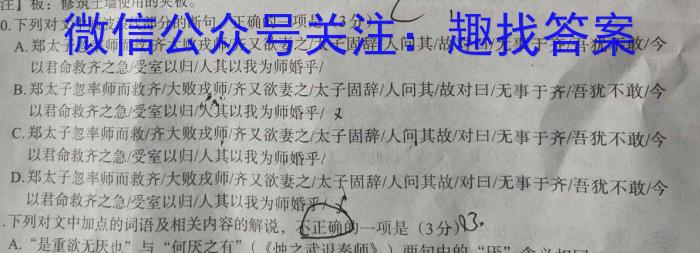 注】板：修筑土墙使用的夹板。
0.下列对文中画波浪线部分的断句，正确的一项是（3分）
微信公众号关注：趣找答案
A.郑太子忽率师而救/齐大败戎师/齐又欲妻之/太子固辞/人问其/故对曰/无事于齐/吾犹不敢/今
以君命救齐之急/受室以归/人其以我为师婚乎/
B.郑太子忽率师而救齐/大败戎师/齐又欲妻之/太子固辞/人问其/故对曰/无事于齐/吾犹不敢/今
以君命救齐之急/受室以归/人其以我为师婚乎/
C.郑太子忽率师而救/齐大败戎师/齐又欲妻之/太子固辞/人问其故/对曰/无事于齐/吾犹不敢/今
以君命救齐之急/受室以归/人其以我为师婚乎/
D.郑太子忽率师而救齐/大败戎师/齐又欲妻之/太子固辞/人问其故/对曰/无事于齐/吾犹不敢/今
以君命救齐之急/受室以归/人其以我为师婚乎/
.下列对文中加点的词语及相关内容的解说，不正确的一项是（3分）B.
A.“是重欲无厌也”与“何厌之有”（《烛之武退秦师》）两句中的“厌”含义相同